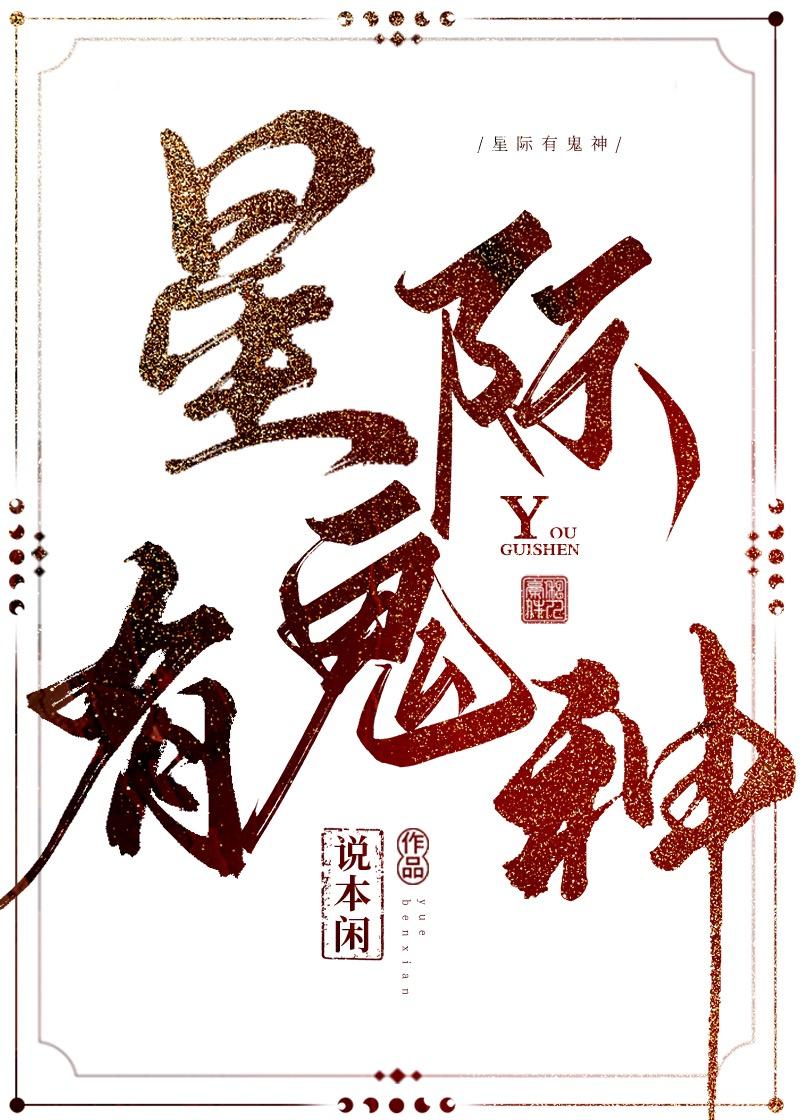 /星际有鬼神/
星际
有鬼神
YOU
GUISHEN
说本闲
作品
yue
benxian